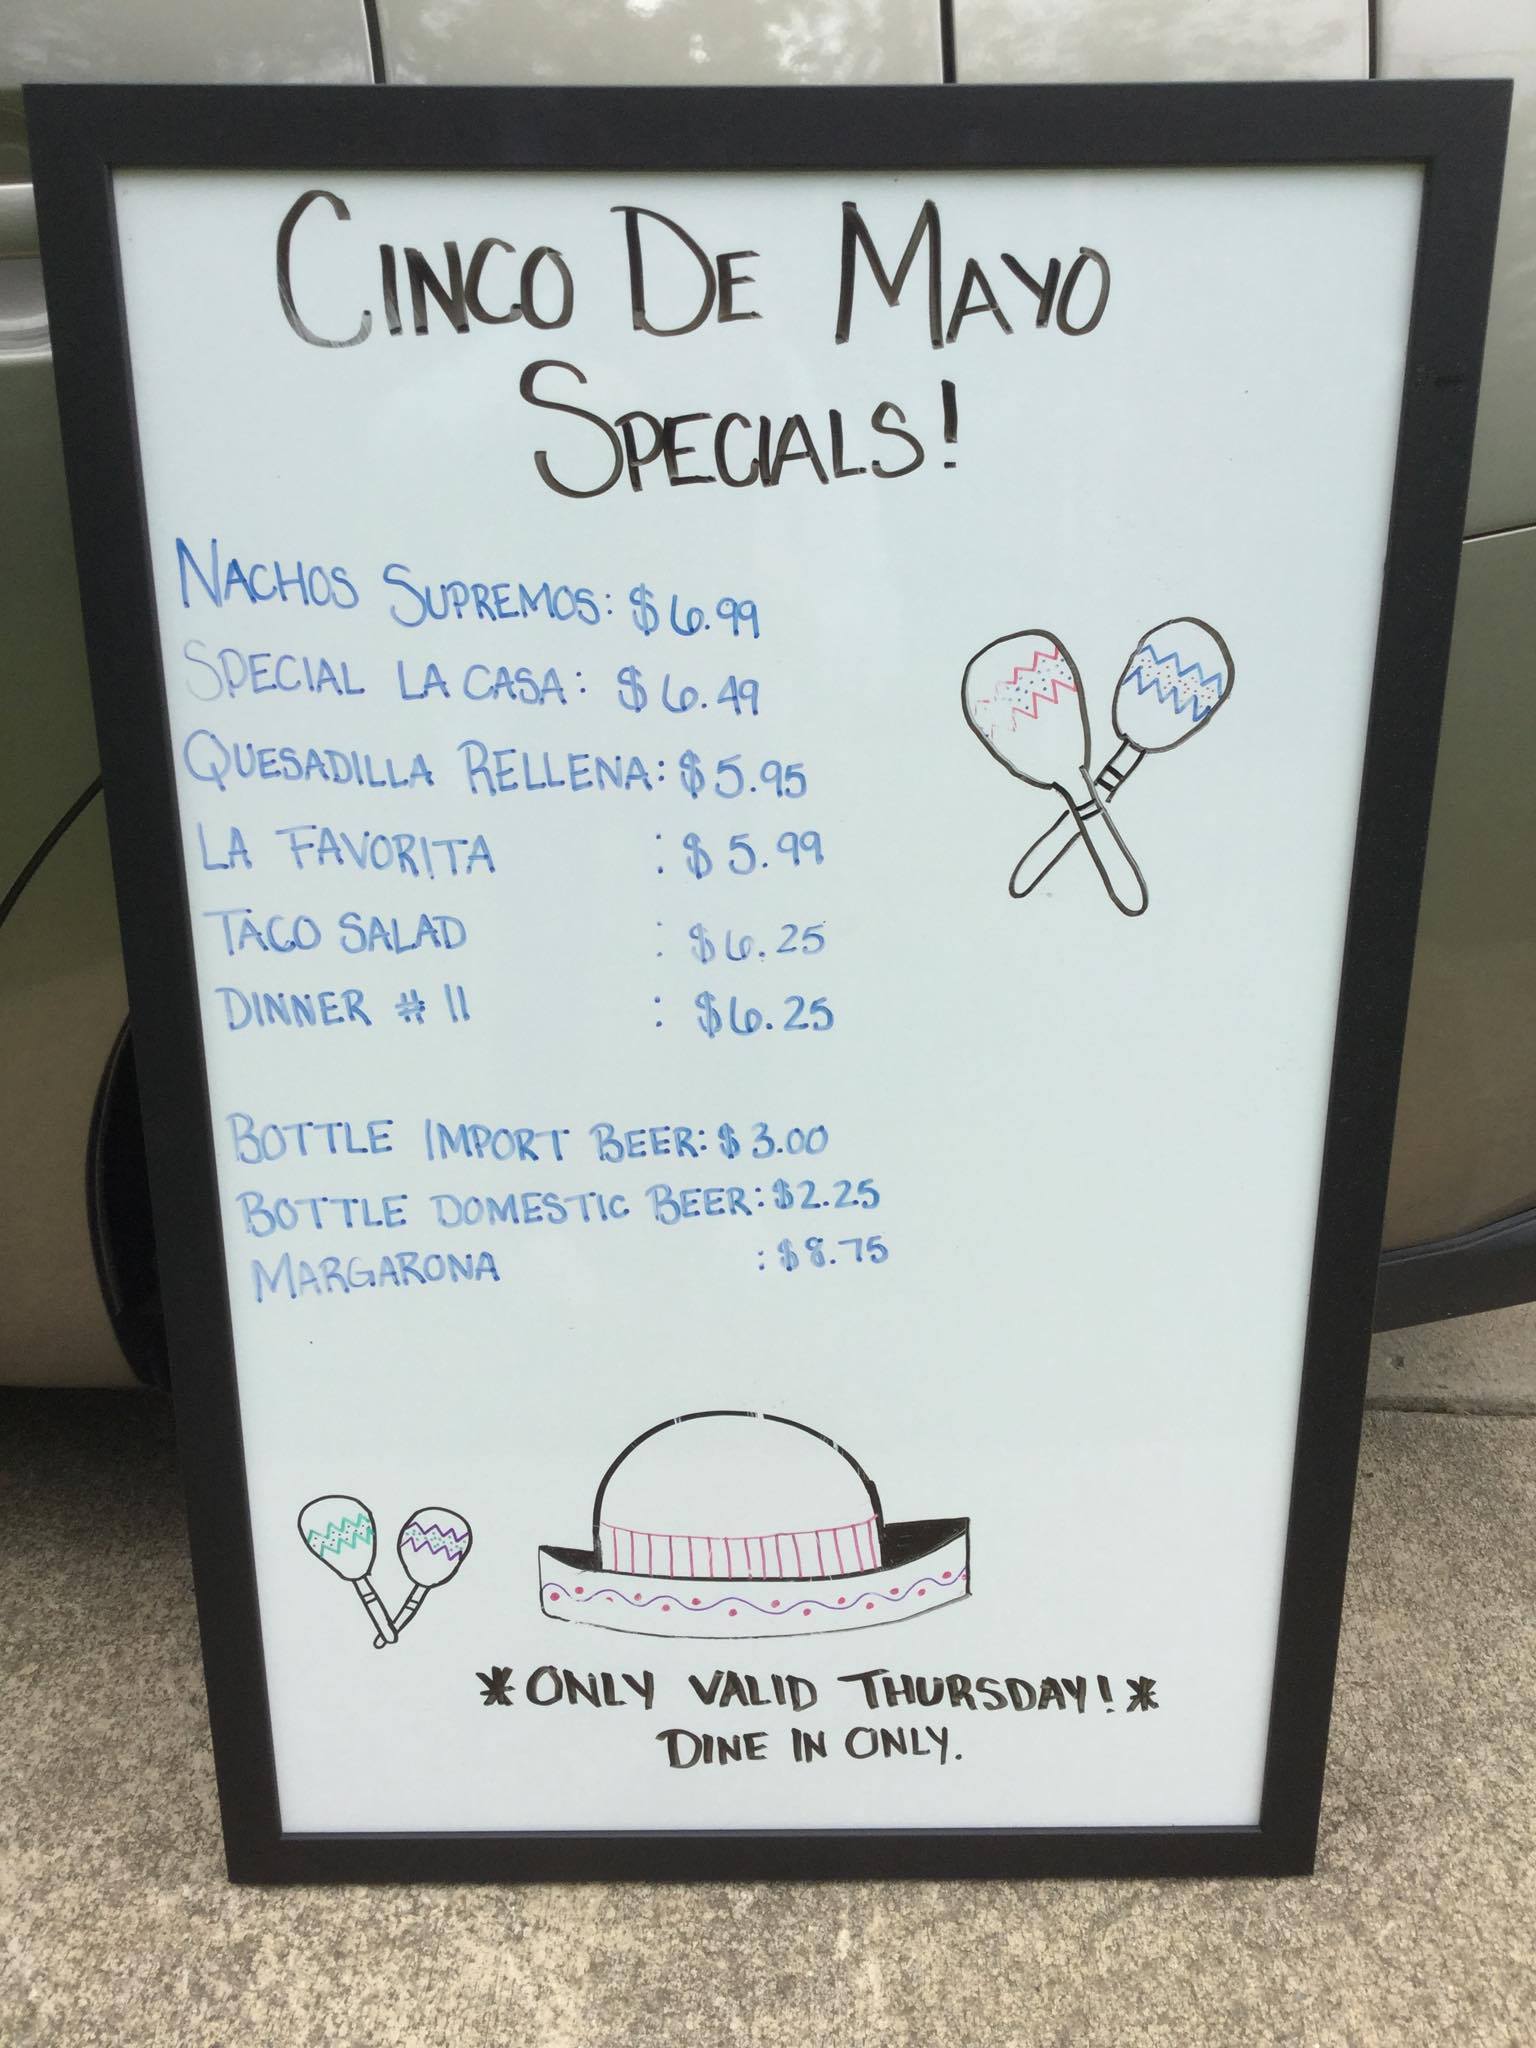 CINCO DE MAYO
SPECIALS!
NACHOS SUPREMOS: $6.99
SPECIAL LA CASA: $6.49
QUESADILLA RELLENA: $5.95
LA FAVORITA : $5.99
TACO SALAD : $6.25
DINNER # 11 : $6.25
BOTTLE IMPORT BEER: $3.00
BOTTLE DOMESTIC BEER: $2.25
MARGARONA : $8.75
*ONLY VALID THURSDAY!*
DINE IN ONLY.